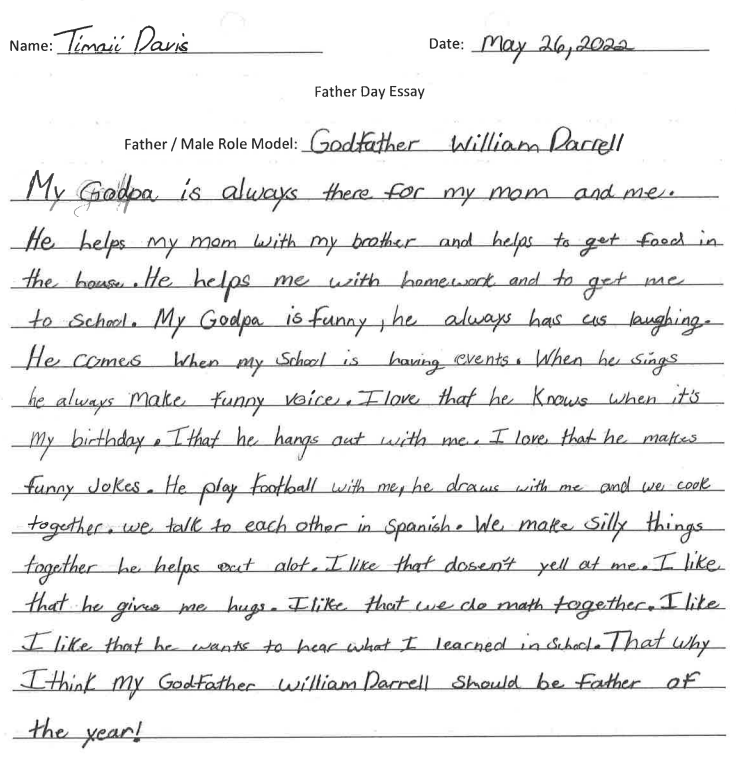 Name: Timaii Davis Date: May 26, 2022
Father Day Essay
Father / Male Role Model: Godfather William Darrell
My Godpa is always there for my mom and me.
He helps my mom with my brother and helps to get food in
the house. He helps me with homework and to get me
to School. My Godpa is funny, he always has us laughing.
He comes when my School is having events. When he sings
he always make funny voice. I love that he knows when it's
my birthday. I that he hangs out with me. I love that he makes
funny Jokes. He play football with me, he draws with me and we cook
together. we talk to each other in Spanish. We make silly things
together he helps out alot. I like that dosen't yell at me. I like
that he gives me hugs. I like that we do math together. I like
I like that he wants to hear what I learned in School. That why
I think my Godfather William Darrell should be father of
the year!